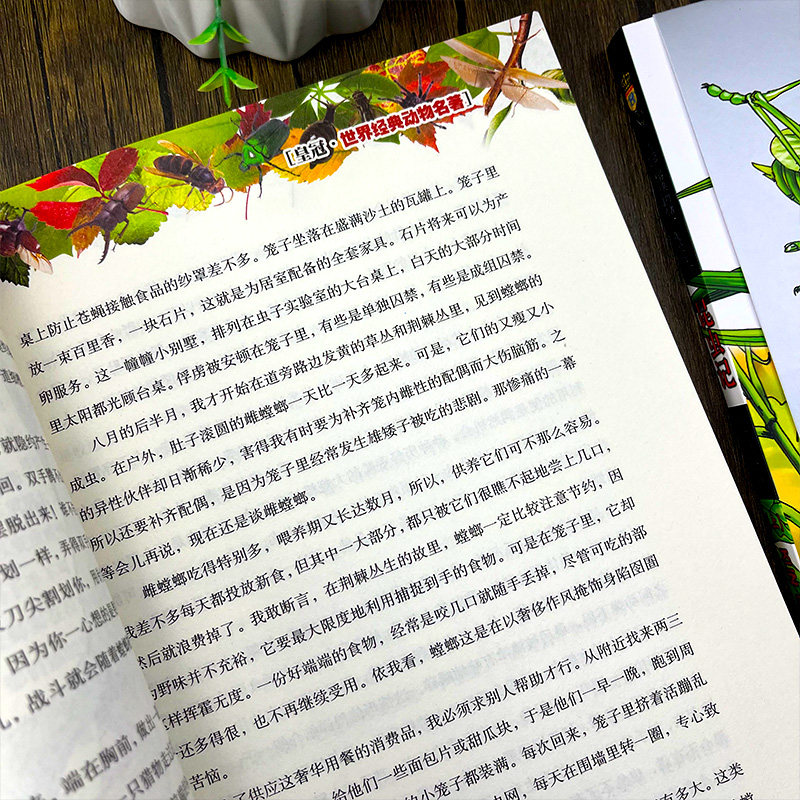 [皇冠·世界经典动物名著]
桌上防止苍蝇接触食品的纱罩差不多。笼子坐落在盛满沙土的瓦罐上。笼子里
放一束百里香，一块石片，这就是为居室配备的全套家具。石片将来可以为产
卵服务。这一幢幢小别墅，排列在虫子实验室的大台桌上，白天的大部分时间
里太阳都光顾台桌。俘虏被安顿在笼子里，有些是单独囚禁，有些是成组囚禁。
八月的后半月，我才开始在道旁路边发黄的草丛和荆棘丛里，见到螳螂的
成虫。在户外，肚子滚圆的雌螳螂一天比一天多起来。可是，它们的又瘦又小
的异性伙伴却日渐稀少，害得我有时要为补齐笼内雌性的配偶而大伤脑筋。之
所以还要补齐配偶，是因为笼子里经常发生雄矮子被吃的悲剧。那惨痛的一幕
等会儿再说，现在还是谈雌螳螂。
雌螳螂吃得特别多，喂养期又长达数月，所以，供养它们可不那么容易。
我差不多每天都投放新食，但其中一大部分，都只被它们很瞧不起地尝上几口，
然后就浪费掉了。我敢断言，在荆棘丛生的故里，螳螂一定比较注意节约，因
为野味并不充裕，它要最大限度地利用捕捉到手的食物。可是在笼子里，它却
这样挥霍无度。一份好端端的食物，经常是咬几口就随手丢掉，尽管可吃的部
还多得很，也不再继续受用。依我看，螳螂这是在以奢侈作风掩饰身陷囹圄
苦恼。
了供应这奢华用餐的消费品，我必须求别人帮助才行。从附近找来两三
给他们一些面包片或甜瓜块，于是他们一早一晚，跑到周
的小笼子都装满。每次回来，笼子里挤着活蹦乱
网，每天在围墙里转一圈，专心致
有多大。这类
间。双手
摆脱出来，
划一样，弄得
刀尖割划你，
因为你一心想
战斗就会随着
端在胸前，做出
一只猎物
昆虫记